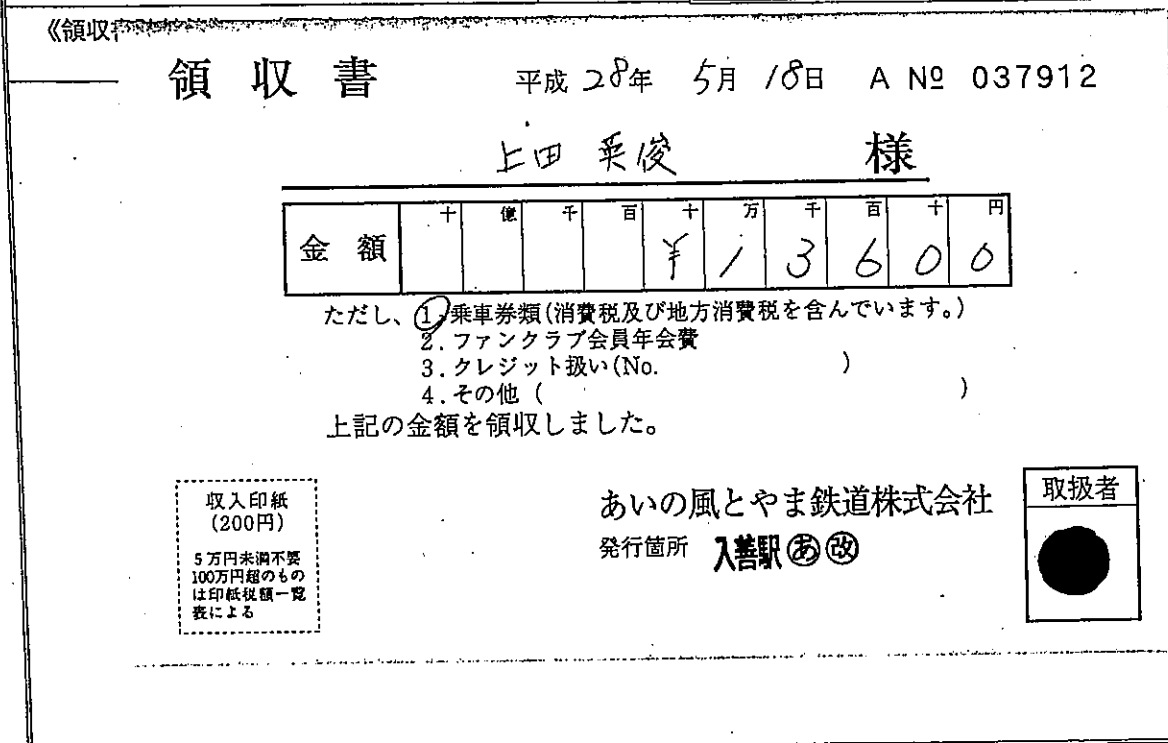 《領収
領収書 平成 28年 5月 18日 A № 037912
上田 英俊 様
金額 十 億 千 百 十 万 千 百 十 円
¥ 1 3 6 0 0
ただし、1.乗車券類(消費税及び地方消費税を含んでいます。)
2.ファンクラブ会員年会費
3.クレジット扱い(No. )
4.その他 ( )
上記の金額を領収しました。
収入印紙
(200円)
5万円未満不要
100万円超のもの
は印紙税額一覧
表による
あいの風とやま鉄道株式会社
発行箇所 入善駅 あ 改
取扱者